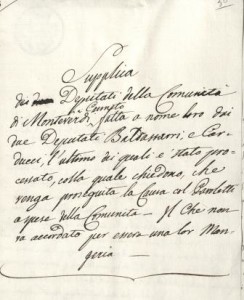 Supplica
dei Deputati della Comunità
di Monteverdi fatta a nome loro dai
due Deputati Baldassarri, e Car-
ducci, l'ultimo de quali è stato pro-
cessato, colla quale chiedono, che
venga proseguita la Causa col
a spese della Comunità — Il Che non
va accordato per essere una lor Man-
geria —